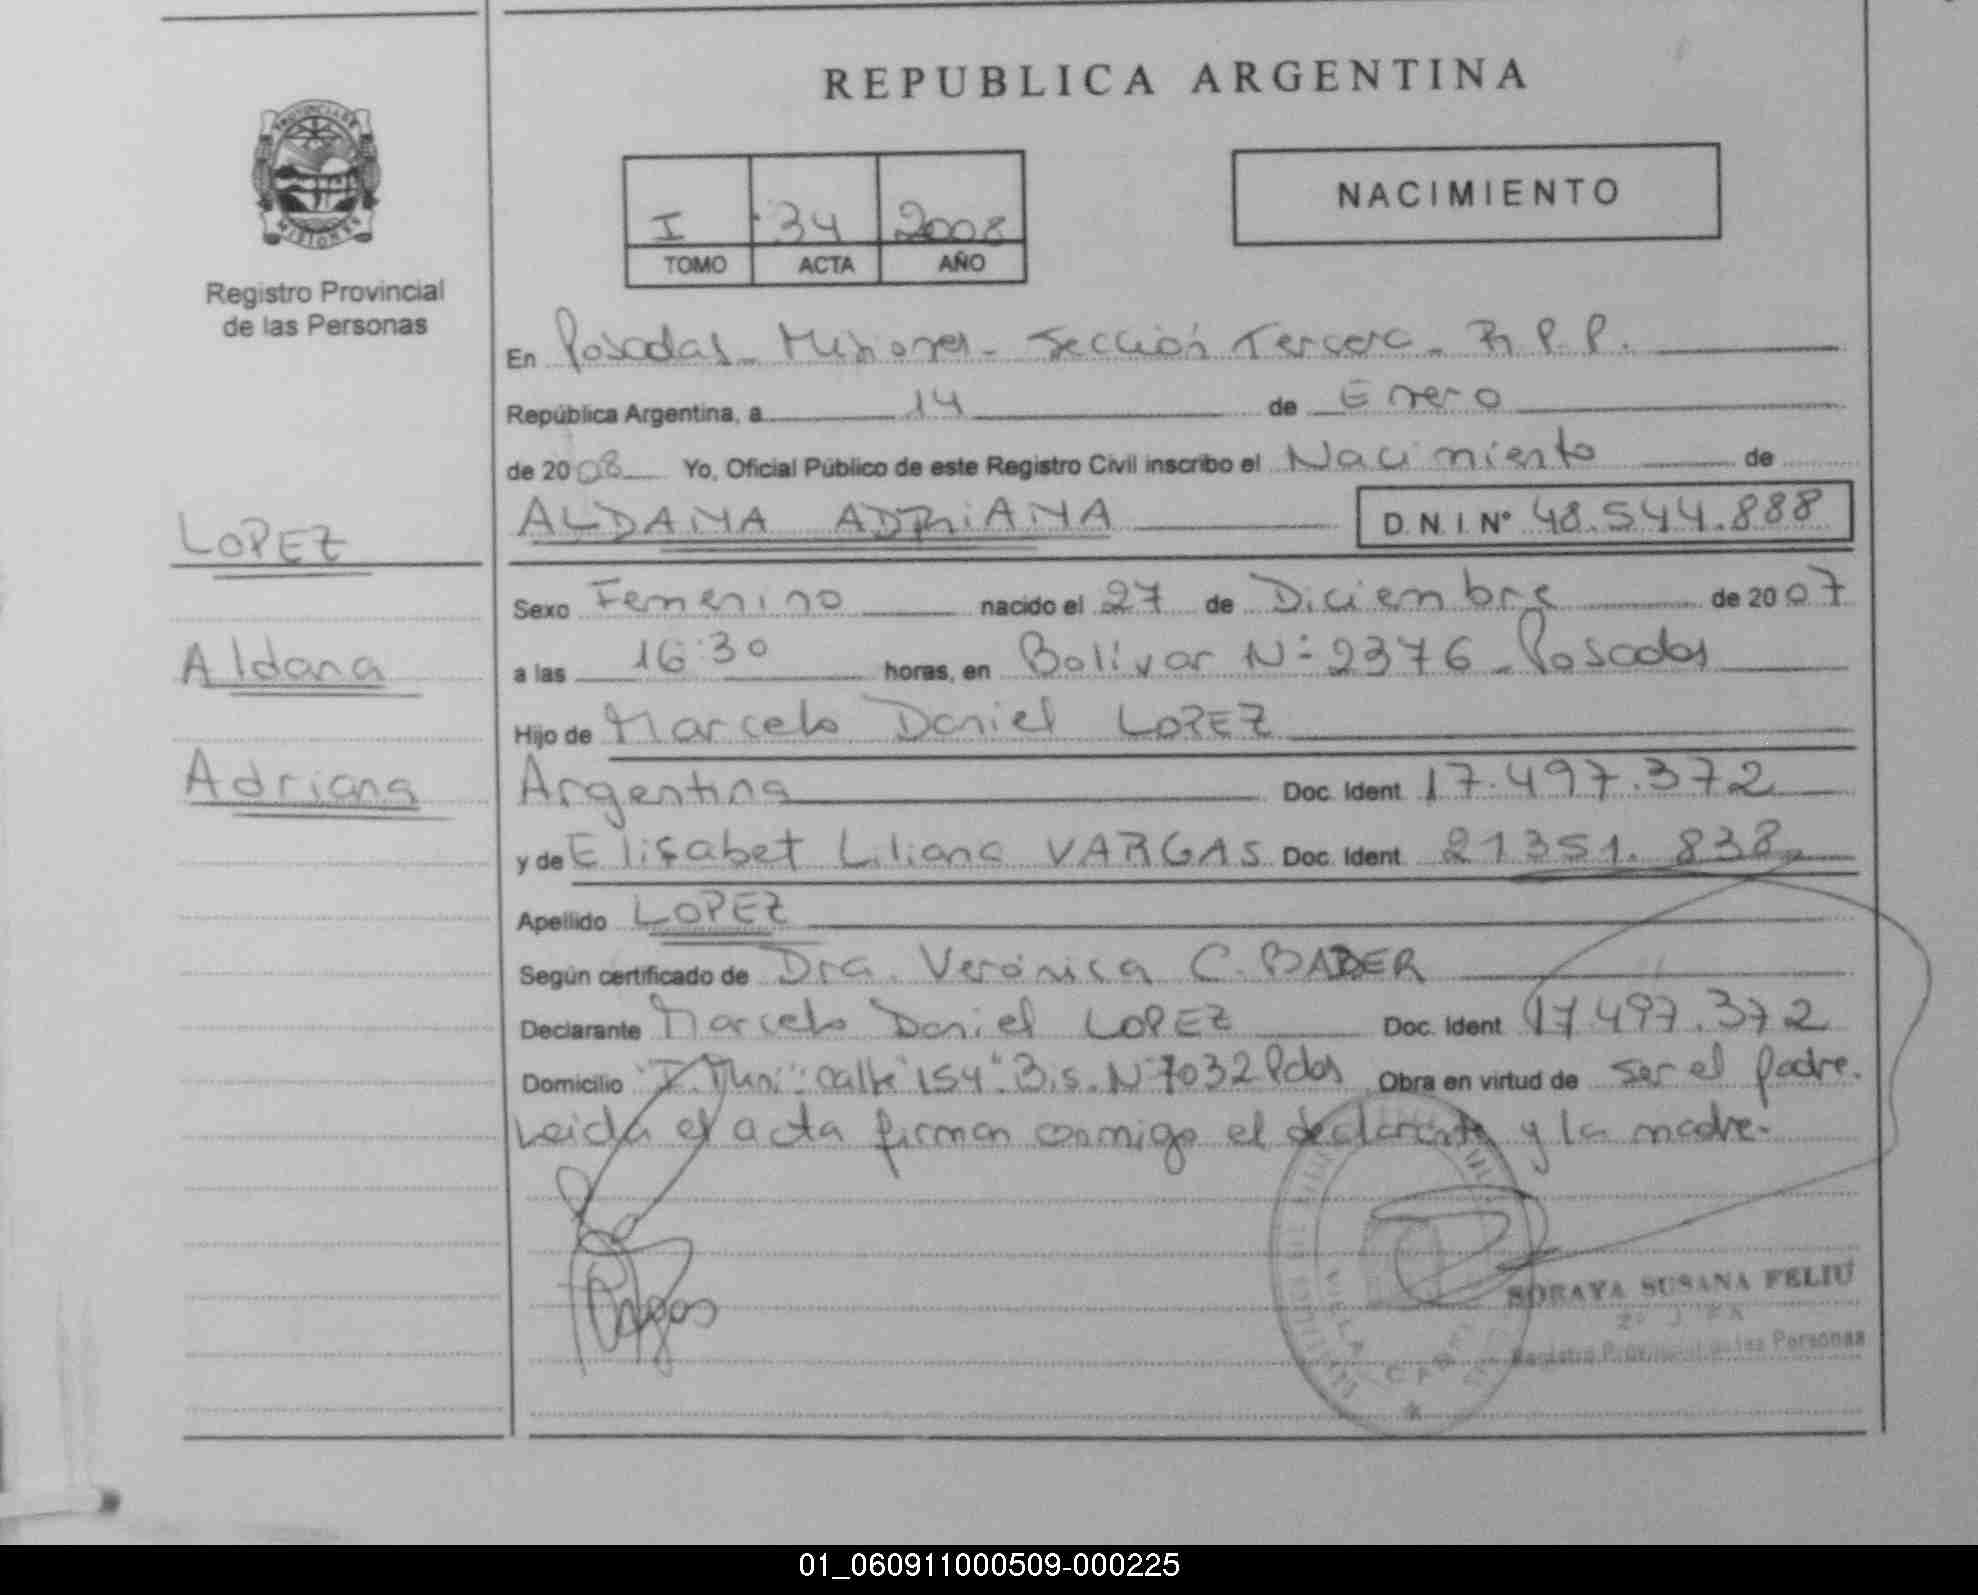 REPUBLICA ARGENTINA
PROVINCIA DE MISIONES
Registro Provincial
de las Personas
NACIMIENTO
I 34 2008
TOMO ACTA AÑO
En Posadas - Misiones - Sección Tercera - R.P.P.
República Argentina, a 14 de Enero
de 2008 Yo, Oficial Público de este Registro Civil inscribo el Nacimiento de
ALDANA ADRIANA D.N.I.Nº 48.544.888
LOPEZ
Aldana
Adriana
Sexo Femenino nacido el 27 de Diciembre de 2007
a las 16:30 horas, en Bolívar Nº 2376 - Posadas
Hijo de Marcelo Daniel LOPEZ
Argentina Doc. Ident 17.497.372
y de Elisabet Liliana VARGAS Doc. Ident 21351.838
Apellido LOPEZ
Según certificado de Dra. Verónica C. BADER
Declarante Marcelo Daniel LOPEZ Doc. Ident 17.497.372
Domicilio calle "154" Bis. Nº 7032 Pdas Obra en virtud de ser el padre.
Leida el acta firman conmigo el declarante y la madre.
SORAYA SUSANA FELIU
Registro Provincial de las Personas
01_060911000509-000225